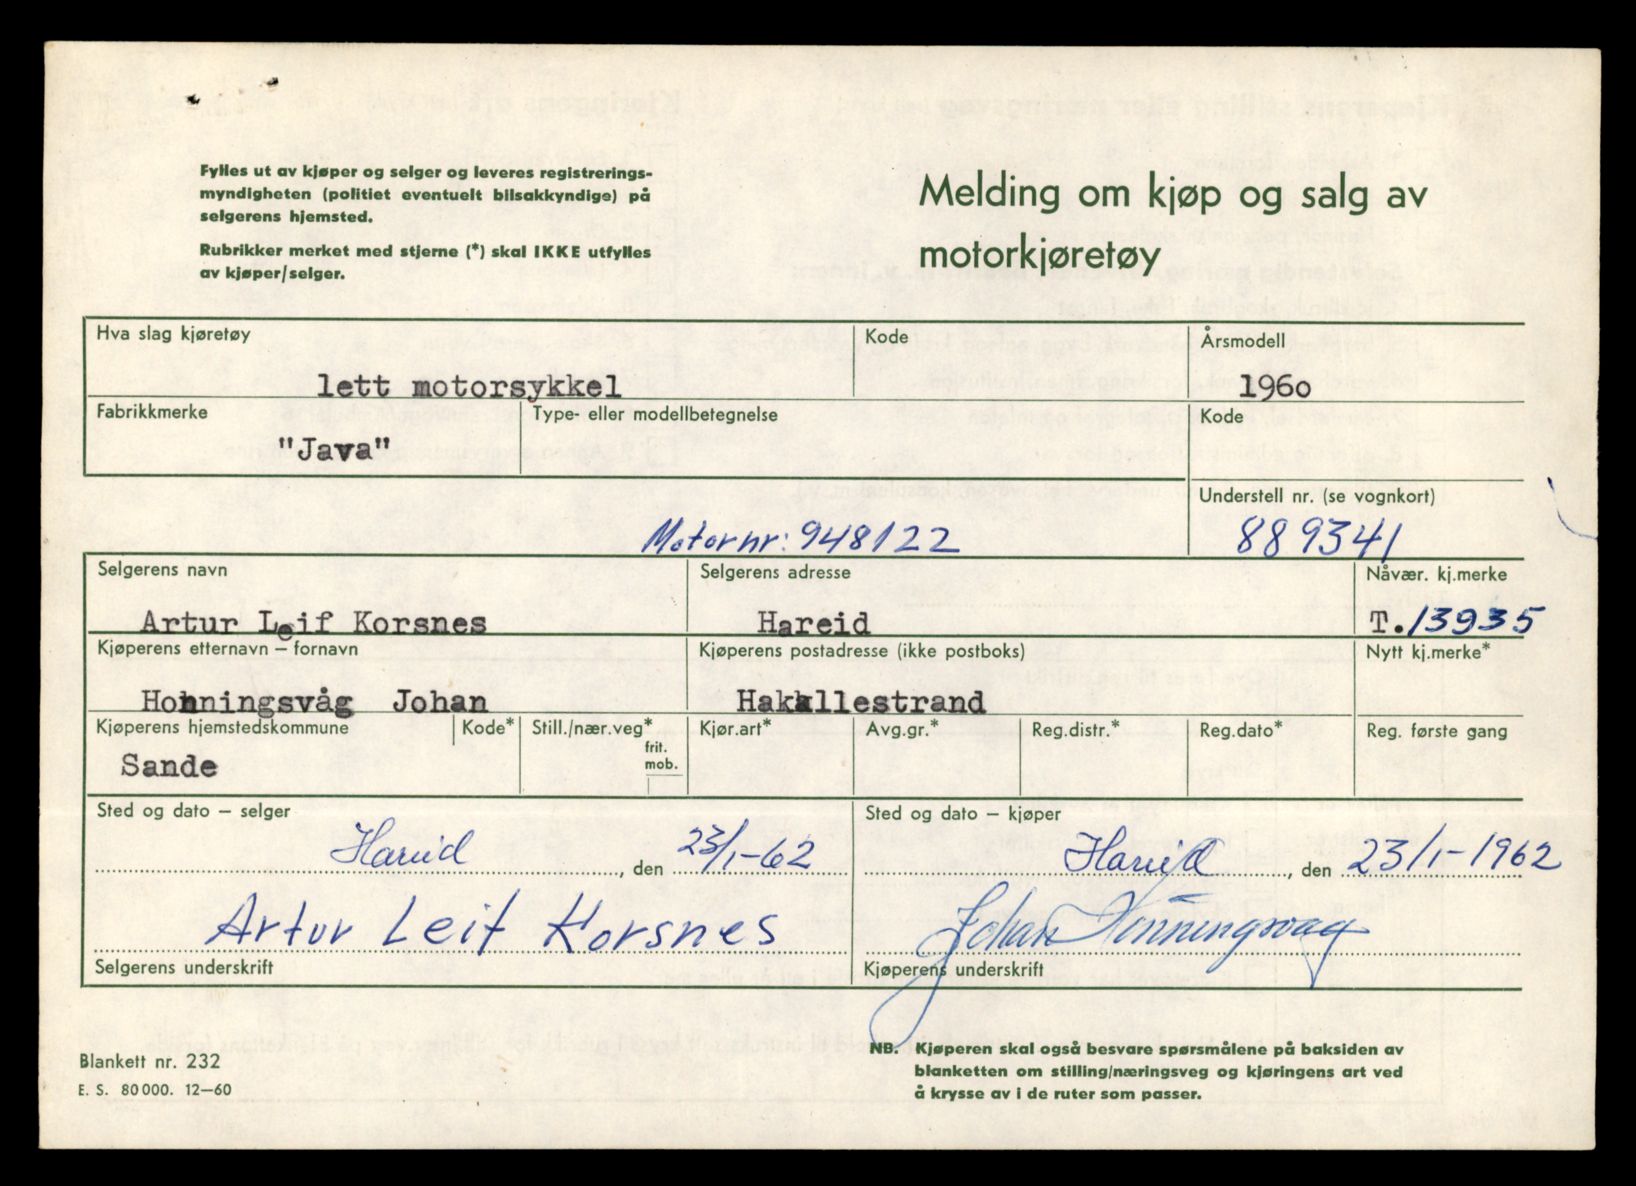 Fylles ut av kjøper og selger og leveres registrerings-
myndigheten (politiet eventuelt bilsakkyndige) på
selgerens hjemsted.
Rubrikker merket med stjerne (*) skal IKKE utfylles
av kjøper/selger.
Melding om kjøp og salg av
motorkjøretøy
Hva slag kjøretøy
Kode
Årsmodell
lett motorsykkel
1960
Fabrikkmerke
Type- eller modellbetegnelse
Kode
"Java"
Understell nr. (se vognkort)
Motornr: 948122
889341
Selgerens navn
Selgerens adresse
Nåvær. kj.merke
Artur Leif Korsnes
Hareid
T.13935
Kjøperens etternavn – fornavn
Kjøperens postadresse (ikke postboks)
Nytt kj.merke*
Honningsvåg Johan
Hakallestrand
Kjøperens hjemstedskommune
Kode*
Still./nær.veg*
Kjør.art*
Avg.gr.*
Reg.distr.*
Reg.dato*
Reg. første gang
frit.
mob.
Sande
Sted og dato – selger
Sted og dato – kjøper
Hareid, den 23/1-62
Hareid, den 23/1-1962
Artur Leif Korsnes
Johan Honningsvåg
Selgerens underskrift
Kjøperens underskrift
Blankett nr. 232
E. S. 80000. 12–60
NB. Kjøperen skal også besvare spørsmålene på baksiden av
blanketten om stilling/næringsveg og kjøringens art ved
å krysse av i de ruter som passer.